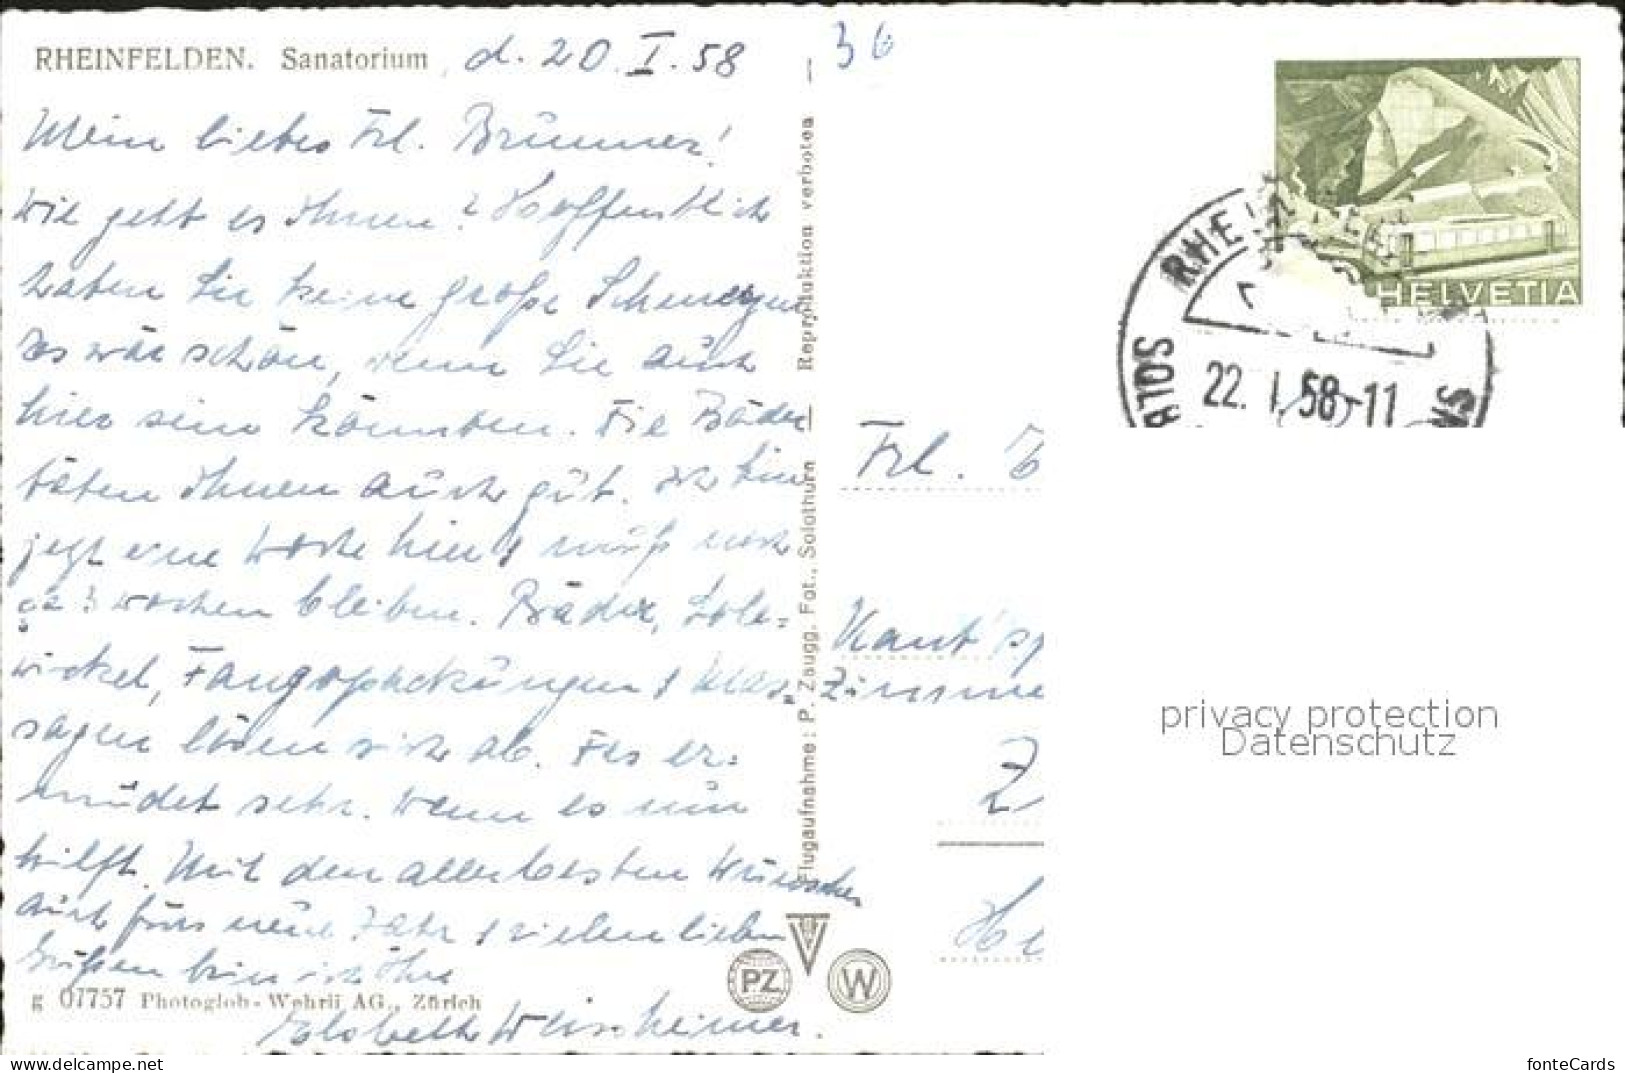 RHEINFELDEN. Sanatorium, d. 20. I. 58
36
Mein liebes Frl. Brunner!
wie geht es Ihnen? Hoffentlich
haben Sie keine große Schmerzen
Es wär schön, wenn Sie auch
hier sein könnten. Die Bäder
täten Ihnen auch gut. Ich bin
jetzt eine Woche hier & muß noch
ca 3 Wochen bleiben. Bäder, Sole-
wickel, Fangopackungen & Mas-
sagen lösen sich ab. Es er-
müdet sehr. Wenn es nur
hilft. Mit den allerbesten Wünschen
auch fürs neue Jahr & vielen lieben
Grüßen bin ich Ihre
Elsbeth Weisheimer.
g 07757 Photoglob-Wehrli AG., Zürich
Flugaufnahme: P. Zaugg, Fot., Solothurn — Reproduktion verboten —
PZ
W
HELVETIA
RHEI
22. I. 58-11
SOLBA
Frl. B
Kant'sp
Zimme
Z
He
privacy protection
Datenschutz
the-postcard.com
fonteCards